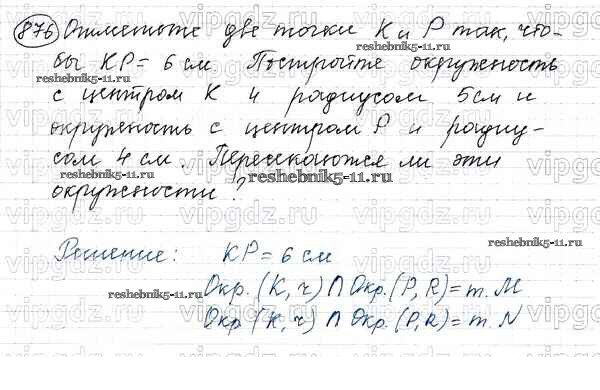 876 Отметьте две точки K и P так, что-
бы KP = 6 см. Постройте окружность
с центром K и радиусом 5 см и
окружность с центром P и радиу-
сом 4 см. Пересекаются ли эти
окружности?
Решение: KP = 6 см
Окр. (K, r) ∩ Окр. (P, R) = т. M
Окр (K, r) ∩ Окр. (P, R) = т. N
reshebnik5-11.ru
reshebnik5-11.ru
reshebnik5-11.ru
reshebnik5-11.ru
reshebnik5-11.ru
reshebnik5-11.ru
vipgdz.ru